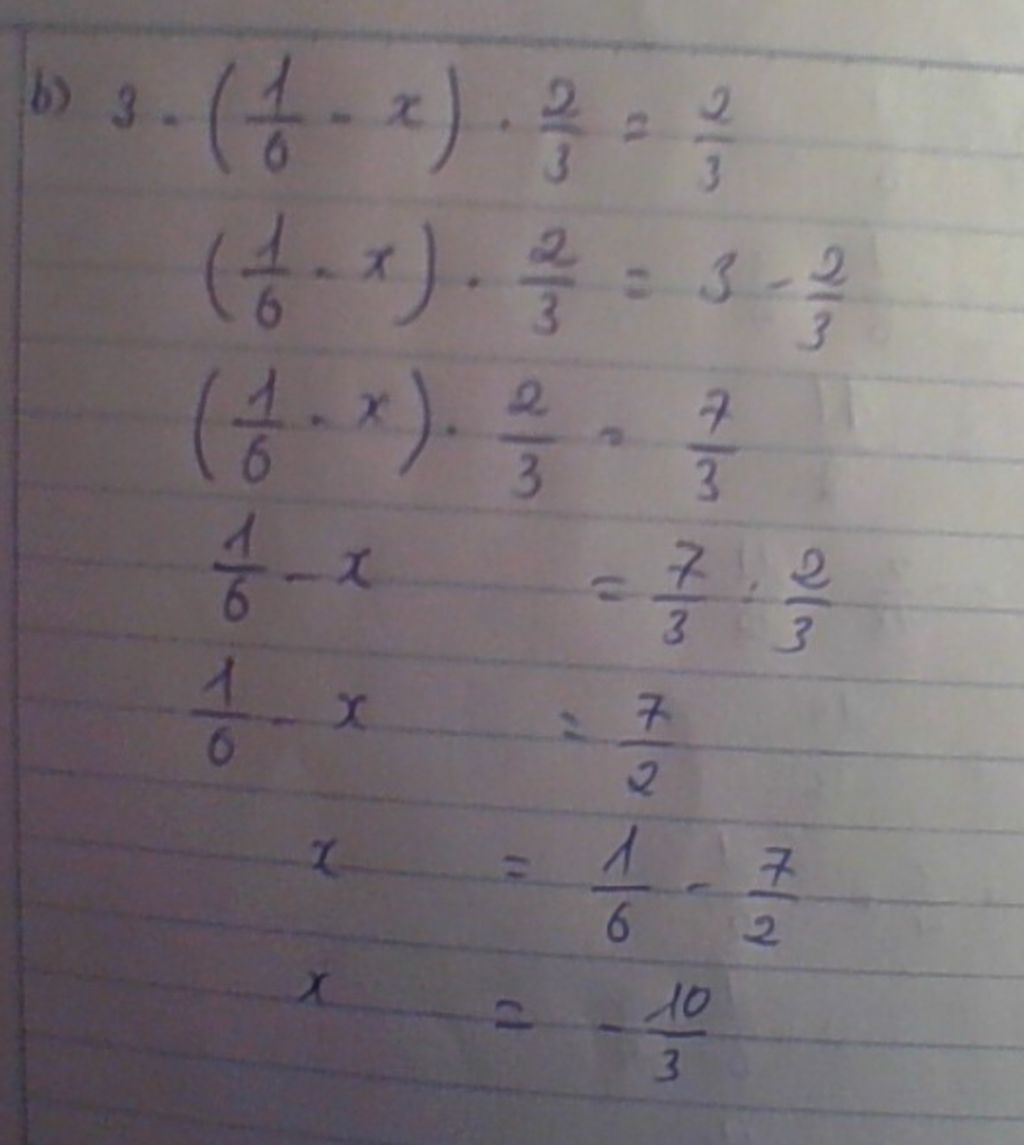 b) 3 - (1/6 - x) · 2/3 = 2/3
(1/6 - x) · 2/3 = 3 - 2/3
(1/6 - x) · 2/3 = 7/3
1/6 - x = 7/3 : 2/3
1/6 - x = 7/2
x = 1/6 - 7/2
x = - 10/3